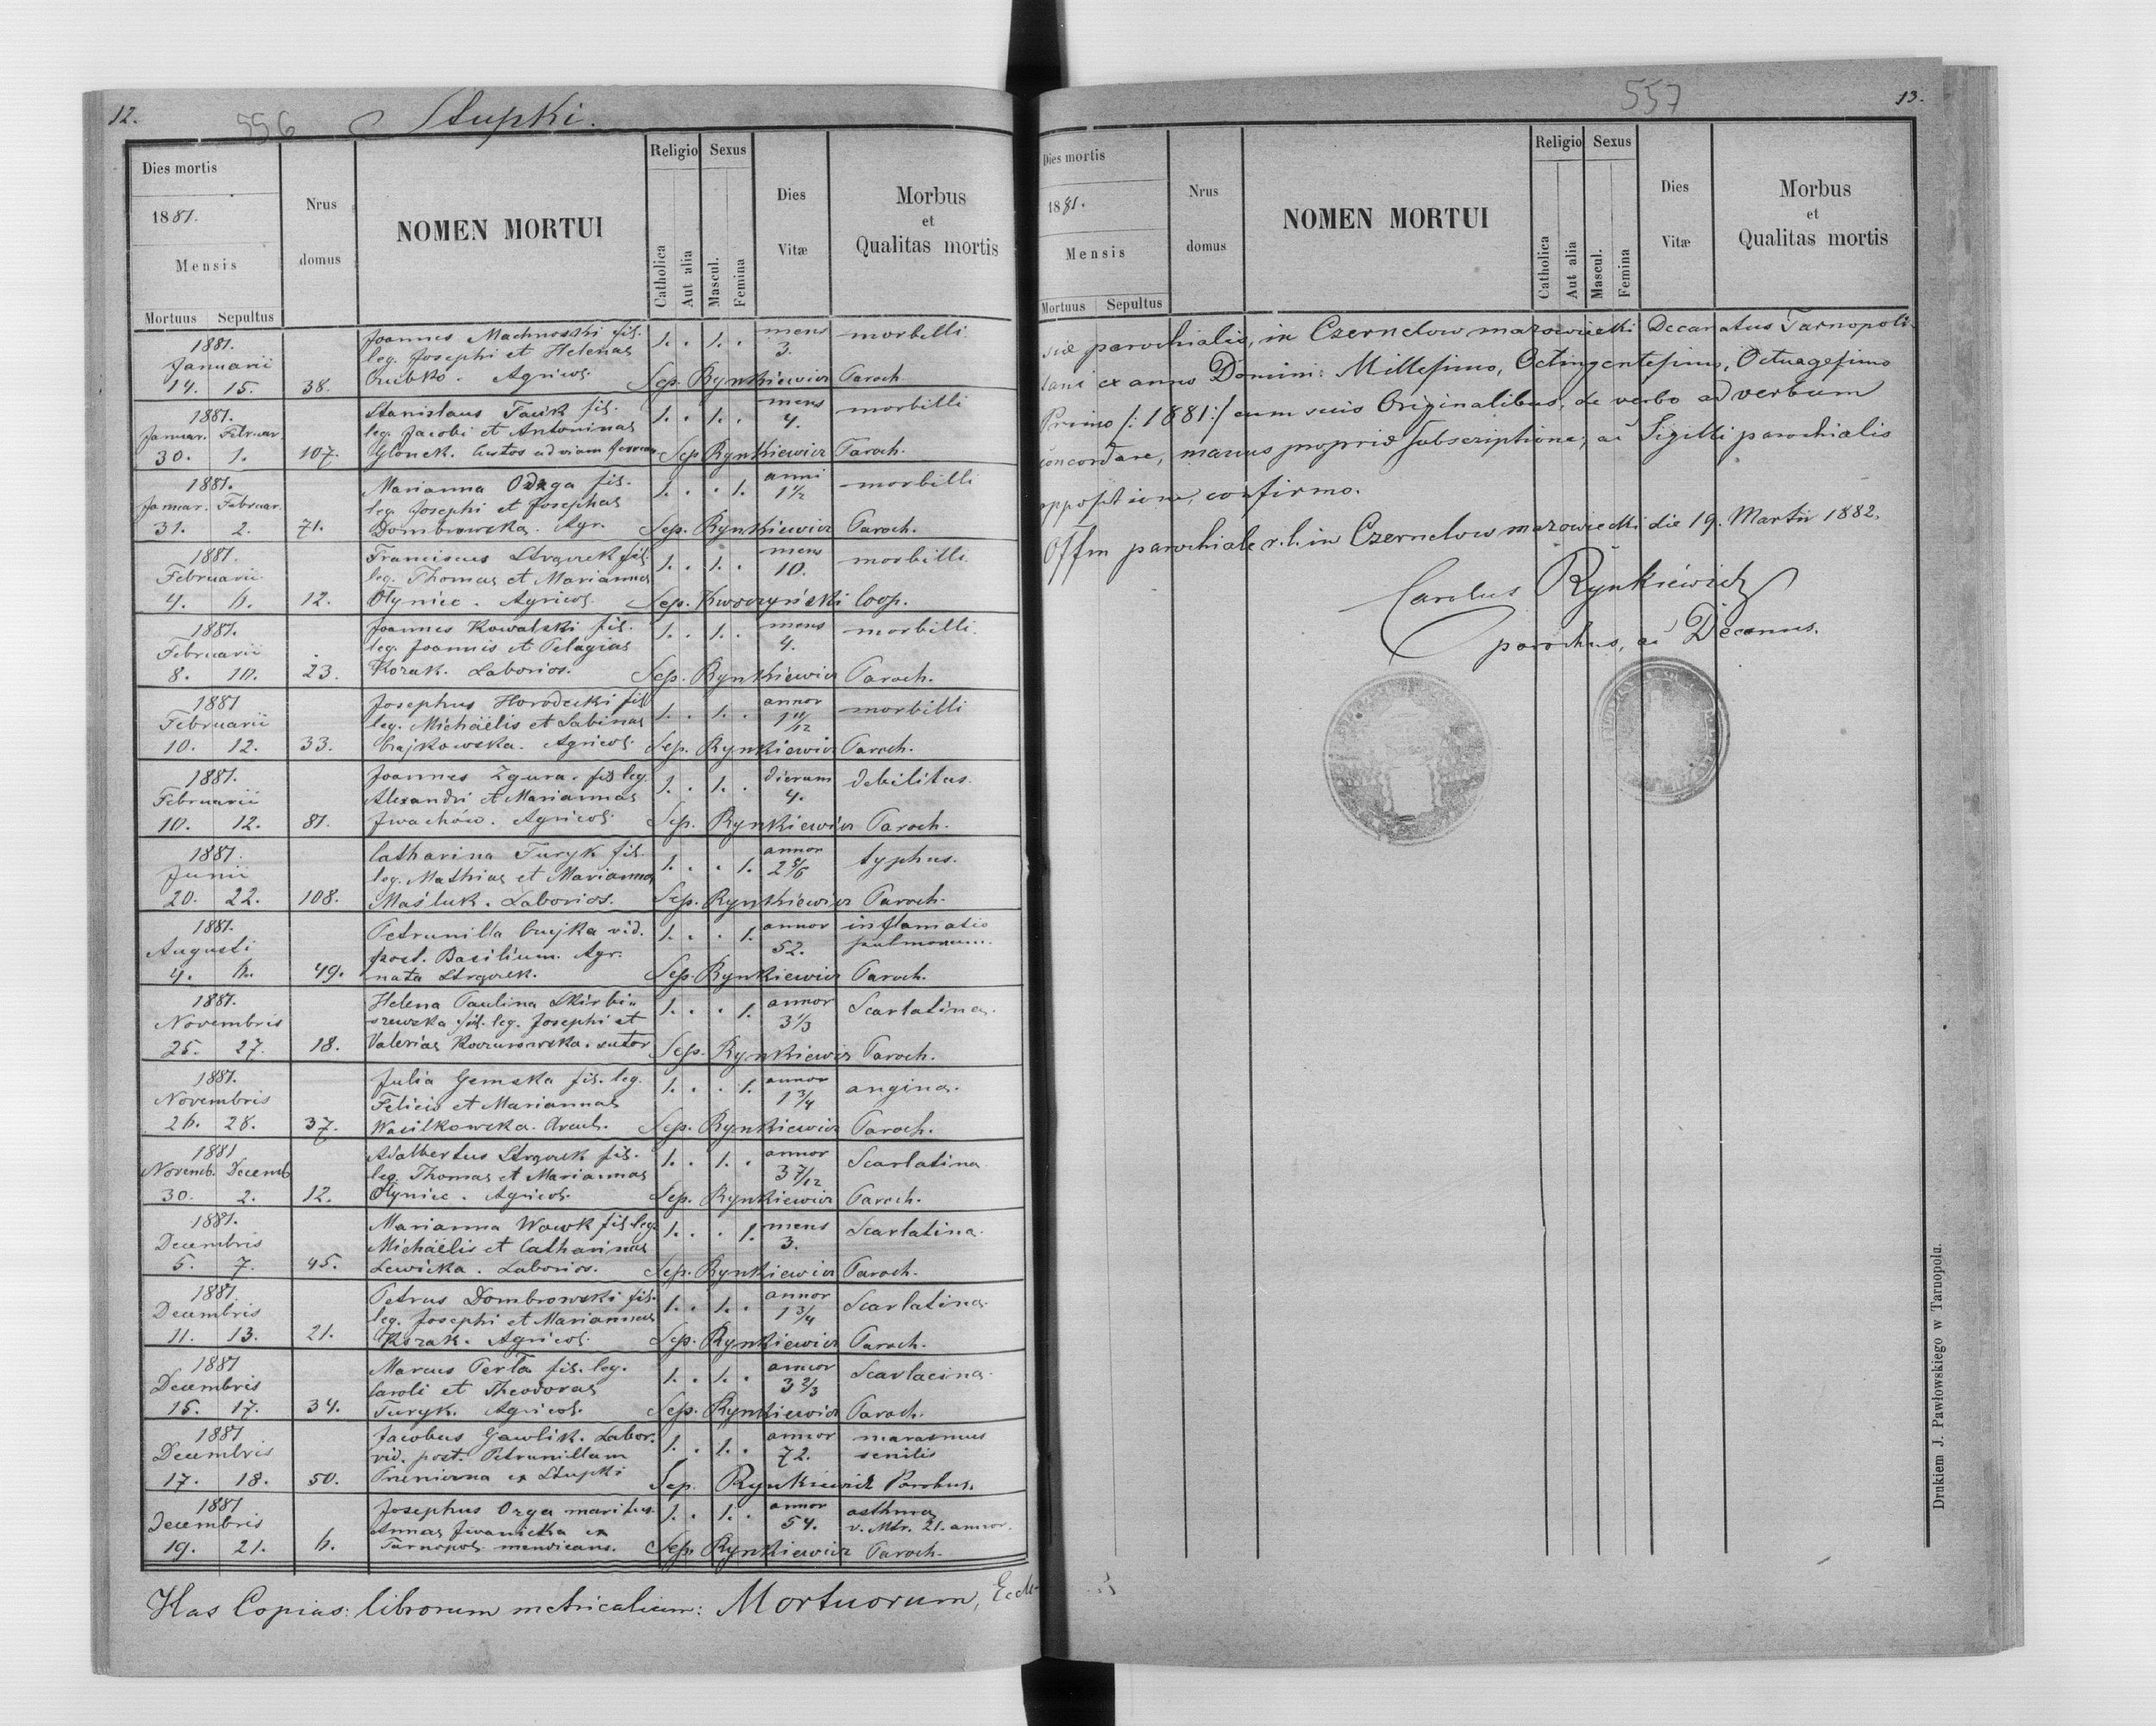 12.
556
Stupki.
Dies mortis
1881.
Mensis
Mortuus Sepultus
Nrus domus
NOMEN MORTUI
Religio
Catholica
Aut alia
Sexus
Mascul.
Femina
Dies Vitæ
Morbus et Qualitas mortis
1881. Joannes Machnoski fil. 1. . 1. . mens morbilli
Januarii leg. Josephi et Helenae 3.
14. 15. 38. Agricol. Sep. Rynkiewicz Paroch.
1881. Stanislaus fil. 1. . 1. . mens morbilli
Januar. Februar. leg. Jacobi et Antoninae 4.
30. 1. 107. Custos ad viam Sep. Rynkiewicz Paroch.
1881. Marianna fil. 1. . . 1. anni morbilli
Januar. Februar. leg. Josephi et Josephae 1 1/2
31. 2. 71. Dombrowska. Agr. Sep. Rynkiewicz Paroch.
1881. Franciscus fil. 1. . 1. . mens morbilli
Februarii leg. Thomae et Mariannae 10.
4. 6. 12. Olyniec. Agricol. Sep. Kwoczyński Coop.
1881. Joannes Kowalski fil. 1. . 1. . mens morbilli.
Februarii leg. Joannis et Pelagiae 4.
8. 10. 23. Kozak. Laborios. Sep. Rynkiewicz Paroch.
1881 Josephus Horodecki fil. 1. . 1. . annor morbilli
Februarii leg. Michäelis et Sabinae 1 11/12
10. 12. 33. Czajkowska. Agricol. Sep. Rynkiewicz Paroch.
1881. Joannes Zgura. fil. leg. 1. . 1. . dierum debilitas.
Februarii Alexandri et Mariannae 4.
10. 12. 81. Iwachów. Agricol. Sep. Rynkiewicz Paroch.
1881. Catharina Turyk fil. 1. . . 1. annor typhus.
Junii leg. Mathiae et Marianna 2 5/6
20. 22. 108. Maśluk. Laborios. Sep. Rynkiewicz Paroch.
1881. Petrunilla vid. 1. . . 1. annor inflamatio
Augusti post. Basilium. Agr. 52. pulmonum.
4. 6. 49. nata Sep. Rynkiewicz Paroch.
1881. Helena Paulina Skirbi- 1. . . 1. annor Scarlatina.
Novembris szewska fil. leg. Josephi et 3 1/3
25. 27. 18. Valeriae sutor Sep. Rynkiewicz Paroch.
1881. Julia Gemska fil. leg. 1. . . 1. annor angina.
Novembris Felicis et Mariannae 1 3/4
26. 28. 37. Wasilkowska. Sep. Rynkiewicz Paroch.
1881 Adalbertus fil. 1. . 1. . annor Scarlatina
Novemb. Decemb leg. Thomae et Mariannae 3 7/12
30. 2. 12. Olyniec. Agricol. Sep. Rynkiewicz Paroch.
1881. Marianna Wowk fil. leg. 1. . . 1. mens Scarlatina.
Decembris Michäelis et Catharinae 3.
5. 7. 45. Lewicka. Laborios. Sep. Rynkiewicz Paroch.
1881. Petrus Dombrowski fil. 1. . 1. . annor Scarlatina.
Decembris leg. Josephi et Mariannae 1 3/4
11. 13. 21. Kozak. Agricol. Sep. Rynkiewicz Paroch.
1881 Marcus Perla fil. leg. 1. . 1. . annor Scarlacina.
Decembris Caroli et Theodorae 3 2/3
15. 17. 34. Turyk. Agricol. Sep. Rynkiewicz Paroch.
1881 Jacobus Gawlik. Labor. 1. . 1. . annor marasmus
Decembris vid. post. Petrunillam 72. senilis
17. 18. 50. ex Stupki Sep. Rynkiewicz Parohus.
1881 Josephus maritus. 1. . 1. . annor asthma
Decembris Annae Iwanicka ex 54. v. Mtr. 21. annor.
19. 21. 6. Tarnopol. mendicans. Sep. Rynkiewicz Paroch.
Has Copias: librorum metricalium: Mortuorum, Eccle-
557
13.
Dies mortis
1881.
Mensis
Mortuus Sepultus
Nrus domus
NOMEN MORTUI
Religio
Catholica
Aut alia
Sexus
Mascul.
Femina
Dies Vitæ
Morbus et Qualitas mortis
siæ parochialis, in Czernelow mazowiecki Decanatus Tarnopoli-
tani ex anno Domini: Millesimo, Octingentesimo, Octuagesimo
Primo /: 1881 :/ cum suis Originalibus, de verbo ad verbum
concordare, manus propriæ subscriptione, ac Sigilli parochialis
oppositione, confirmo.
Offm parochiale r. l. in Czernelow mazowiecki die 19. Martii 1882.
Carolus Rynkiewicz
parochus, ac Decanus.
Drukiem J. Pawłowskiego w Tarnopolu.